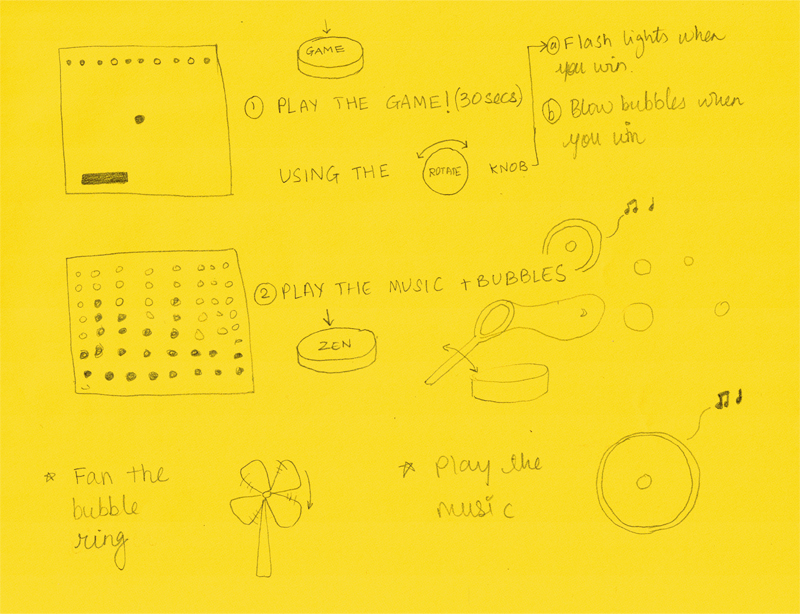 GAME
① PLAY THE GAME! (30 secs)
USING THE ROTATE KNOB
ⓐ Flash lights when
you win.
ⓑ Blow bubbles when
you win
② PLAY THE MUSIC + BUBBLES
ZEN
☆ Fan the
bubble
ring
☆ Play the
music